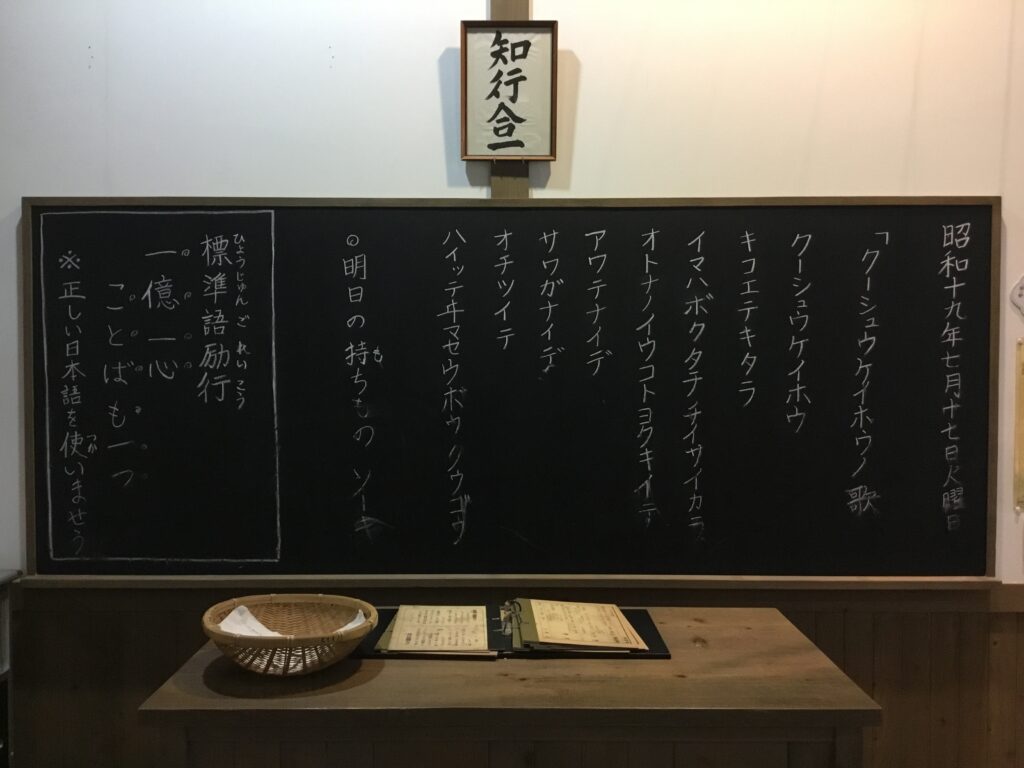 知行合一
昭和十九年七月十七日火曜日
「クーシュウケイホウノ歌
クーシュウケイホウ
キコエテキタラ
イマハボクタチチイサイカラ
オトナノイウコトヨクキイテ
アワテナイデ
サワガナイデ
オチツイテ
ハイッテヰマセウボウクウゴウ
◎明日の持ちもの ゾーキ
標準語励行
ひょうじゅんごれいこう
一億一心
ことばも一つ
※正しい日本語を使いませう